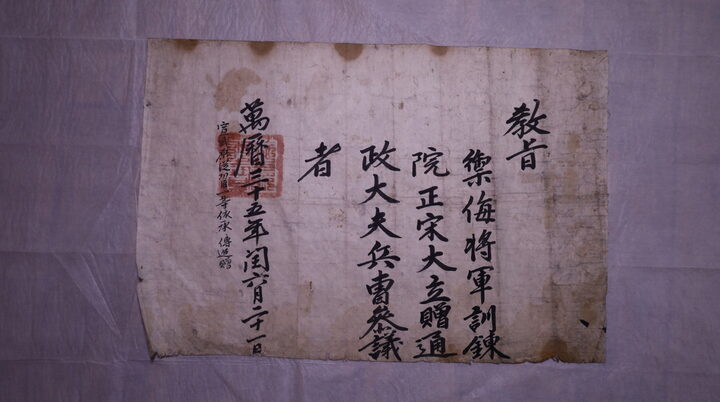 教旨
禦侮將軍訓鍊
院正宋大立贈通
政大夫兵曹參議
者
萬曆三十五年閏六月二十一日
一等依承 傳追贈